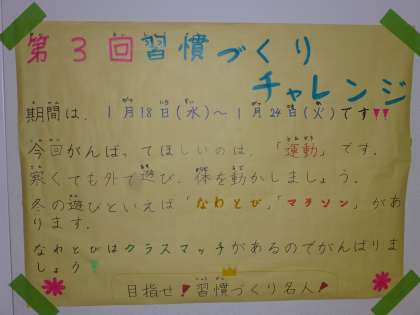 第3回習慣づくり
チャレンジ
期間は、1月18日(水)～1月24日(火)です
今回がんばってほしいのは、「運動」です。
寒くても外で遊び、体を動かしましょう。
冬の遊びといえば「なわとび」,「マラソン」があ
ります。
なわとびはクラスマッチがあるのでがんばりま
しょう
目指せ!習慣づくり名人!